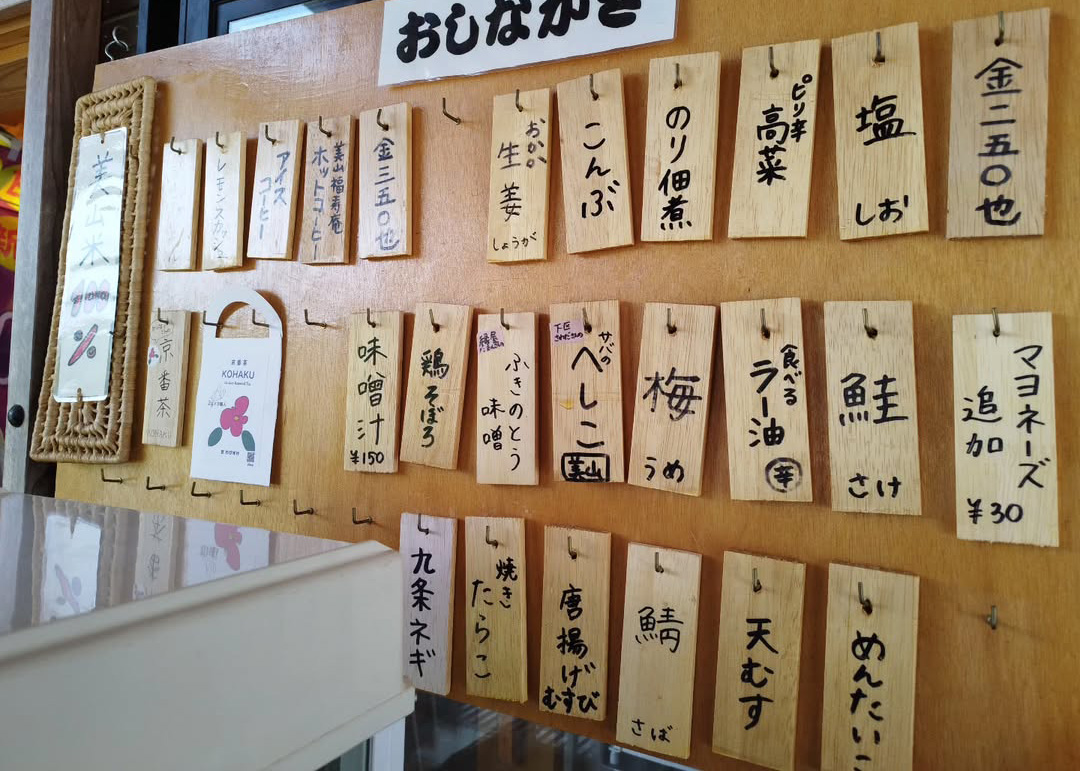 おしながき
金二五〇也
塩 しお
ピリ辛
高菜
のり佃煮
こんぶ
おかか
生姜 しょうが
金三五〇也
美山福寿庵
ホットコーヒー
アイス
コーヒー
レモンスカッシュ
マヨネーズ
追加
¥30
鮭 さけ
食べる
ラー油
辛
梅 うめ
サバの
へしこ
美山
ふきのとう
味噌
鶏そぼろ
味噌汁
¥150
KOHAKU
京番茶
美山米
100
%
めんたいこ
天むす
鯖 さば
唐揚げ
むすび
焼き
たらこ
九条ネギ